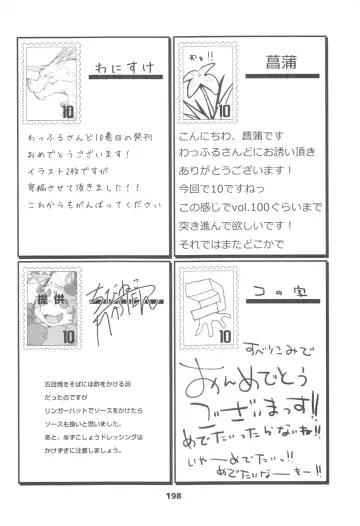 わにすけ
10
わっふるさんど10巻目の発刊
おめでとうございます!
イラスト2枚ですが
寄稿させて頂きました!!
これからもがんばってください
わぁ!!
菖蒲
10
こんにちわ、菖蒲です
わっふるさんどにお誘い頂き
ありがとうございます!
今回で10ですねっ
この感じでvol.100ぐらいまで
突き進んで欲しいです!
それではまたどこかで
提供
10
五目焼きそばには酢をかける派
だったのですが
リンガーハットでソースをかけたら
ソースも良いと思いました。
あと、ゆずこしょうドレッシングは
かけすぎに注意しましょう。
コの字
10
すべりこみで
おめんでとう
ございまっす!!
めでたいったらないね!!
いやーめでたい!!
めでたいなーもー!!
198